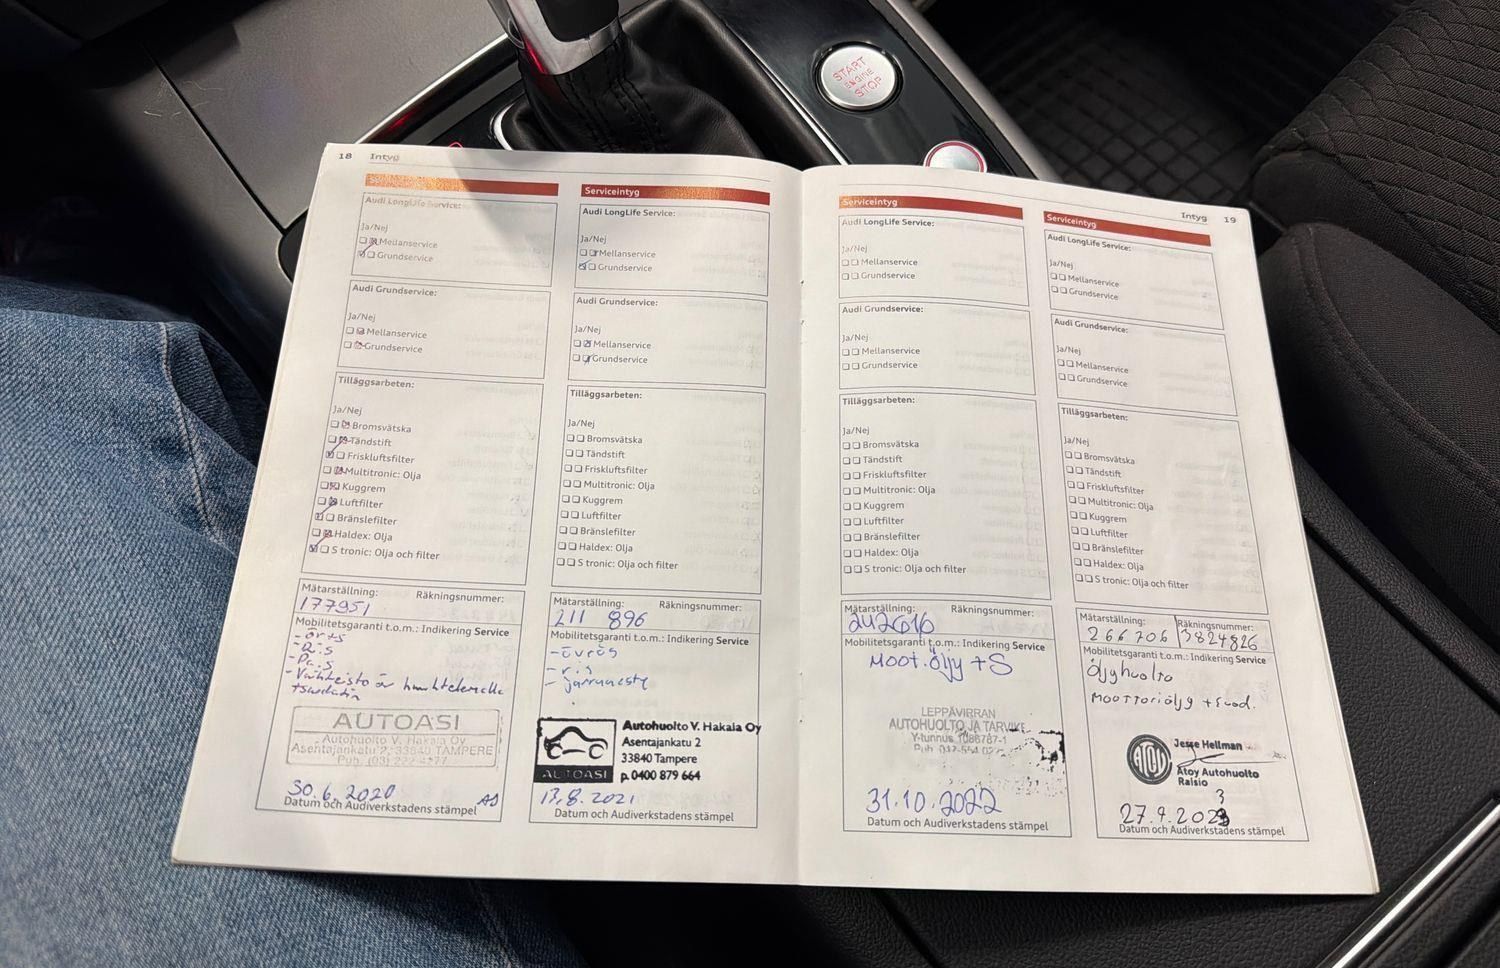 START
ENGINE
STOP
18 Intyg
Audi LongLife Service:
Ja/Nej
Mellanservice
Grundservice
Audi Grundservice:
Ja/Nej
Mellanservice
Grundservice
Tilläggsarbeten:
Ja/Nej
Bromsvätska
Tändstift
Friskluftsfilter
Multitronic: Olja
Kuggrem
Luftfilter
Bränslefilter
Haldex: Olja
S tronic: Olja och filter
Mätarställning: Räkningsnummer:
177951
Mobilitetsgaranti t.o.m.: Indikering Service
AUTOASI
Autohuolto V. Hakala Oy
Asentajankatu 2, 33840 TAMPERE
Puh. (03) 222 4277
30.6.2020
Datum och Audiverkstadens stämpel
Serviceintyg
Audi LongLife Service:
Ja/Nej
Mellanservice
Grundservice
Audi Grundservice:
Ja/Nej
Mellanservice
Grundservice
Tilläggsarbeten:
Ja/Nej
Bromsvätska
Tändstift
Friskluftsfilter
Multitronic: Olja
Kuggrem
Luftfilter
Bränslefilter
Haldex: Olja
S tronic: Olja och filter
Mätarställning: Räkningsnummer:
211 896
Mobilitetsgaranti t.o.m.: Indikering Service
AUTOASI
Autohuolto V. Hakala Oy
Asentajankatu 2
33840 Tampere
p. 0400 879 664
13.8.2021
Datum och Audiverkstadens stämpel
Serviceintyg
Audi LongLife Service:
Ja/Nej
Mellanservice
Grundservice
Audi Grundservice:
Ja/Nej
Mellanservice
Grundservice
Tilläggsarbeten:
Ja/Nej
Bromsvätska
Tändstift
Friskluftsfilter
Multitronic: Olja
Kuggrem
Luftfilter
Bränslefilter
Haldex: Olja
S tronic: Olja och filter
Mätarställning: Räkningsnummer:
242616
Mobilitetsgaranti t.o.m.: Indikering Service
Moot.öljy +S
LEPPÄVIRRAN
AUTOHUOLTO JA TARVIKE
Y-tunnus 1086787-1
31.10.2022
Datum och Audiverkstadens stämpel
Intyg 19
Serviceintyg
Audi LongLife Service:
Ja/Nej
Mellanservice
Grundservice
Audi Grundservice:
Ja/Nej
Mellanservice
Grundservice
Tilläggsarbeten:
Ja/Nej
Bromsvätska
Tändstift
Friskluftsfilter
Multitronic: Olja
Kuggrem
Luftfilter
Bränslefilter
Haldex: Olja
S tronic: Olja och filter
Mätarställning: Räkningsnummer:
266706 3824826
Mobilitetsgaranti t.o.m.: Indikering Service
öljyhuolto
moottoriöljy + suod.
ATOY
Jesse Hellman
Atoy Autohuolto
Raisio
3
Datum och Audiverkstadens stämpel